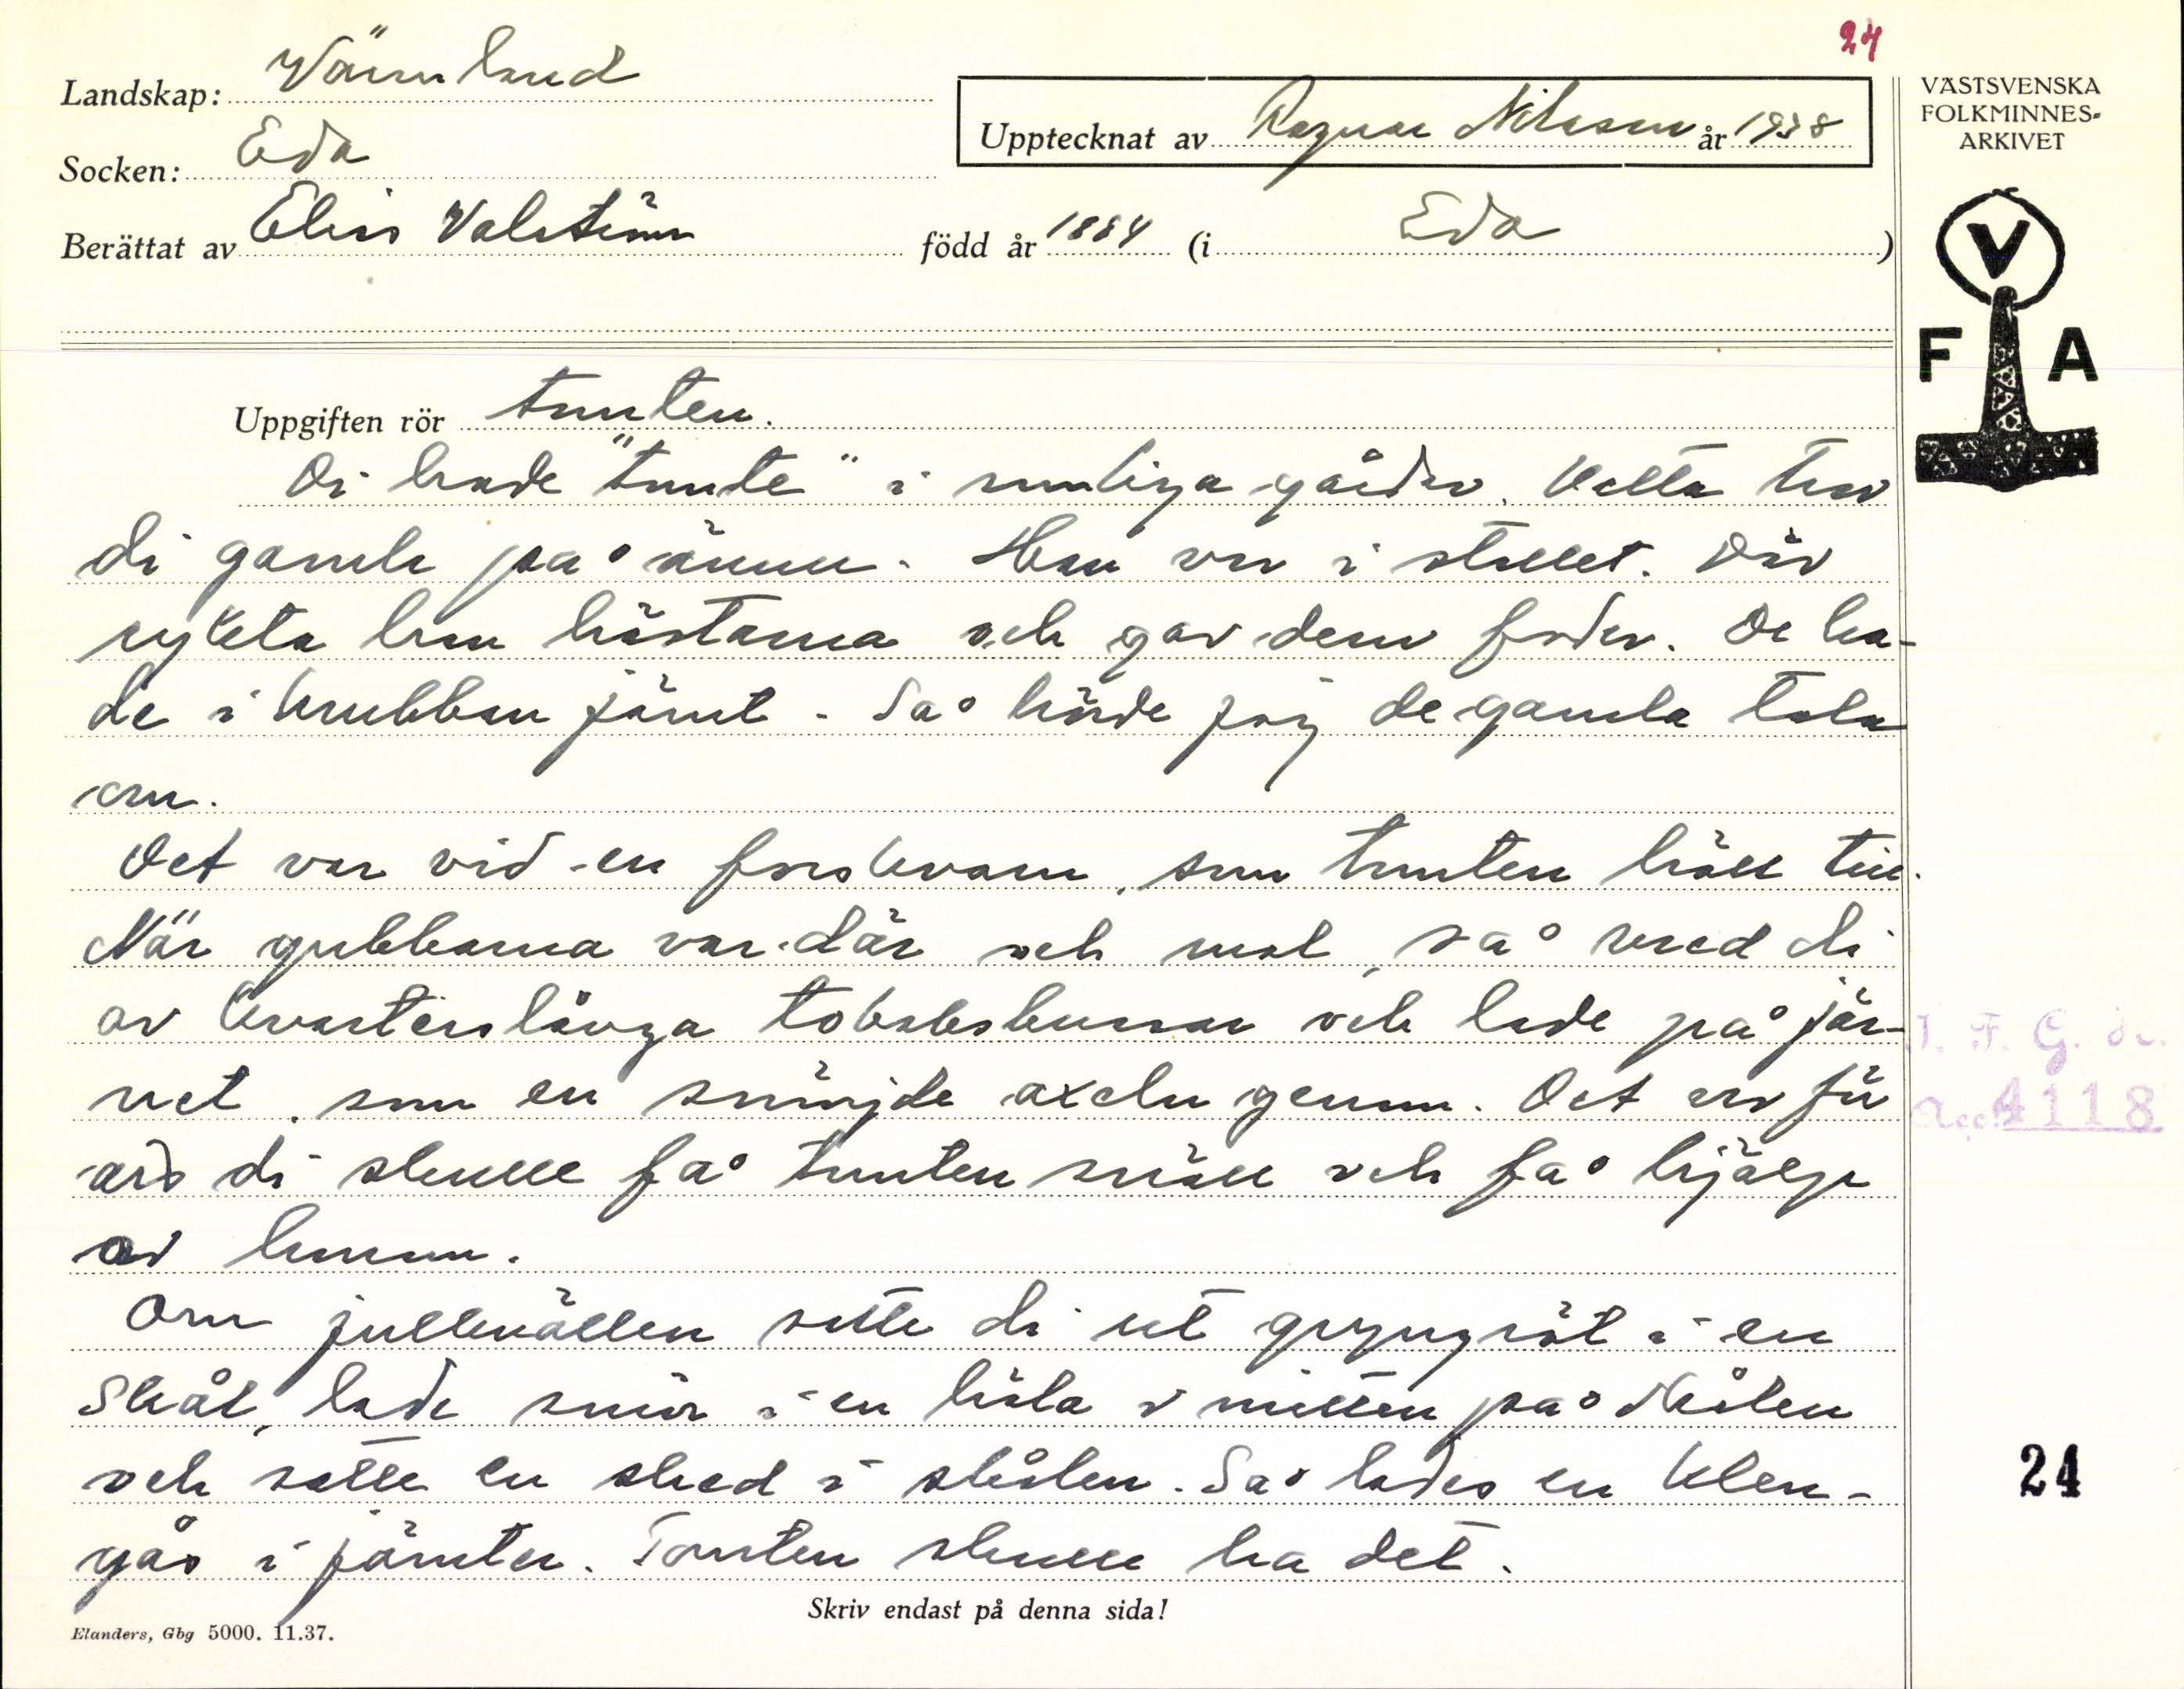 24
Landskap: Värmland
Socken: Eda
Upptecknat av Ragnar Nilsson år 1938
Berättat av Elis Valström född år 1884 (i Eda)
VÄSTSVENSKA
FOLKMINNES-
ARKIVET
V
F A
Uppgiften rör tomten.
Di hade "tomte" i somliga gårder. Detta tror
di gamle på ännu. Han var i stallet. Där
rykta han hästarna och gav dem foder. De ha-
de i krubban jämt. Så hörde jag de gamla tala
om.
Det var vid en forskvarn, som tomten höll till.
När gubbarna var där och mol, så vred di
av kvarterslånga tobaksbussar och lade på jär-
net, som en smörjde axeln genom. Det var för
att di skulle få tomten snäll och få hjälp
av honom.
Om julkvällen satte di ut gryngröt i en
Skål, lade smör i en hola i mitten på skålen
och satte en sked i skålen. Så lades en klen-
gås i jämte. Tomten skulle ha det.
I. F. G. dr.
Acc. 4118
24
Skriv endast på denna sida!
Elanders, Gbg 5000. 11.37.